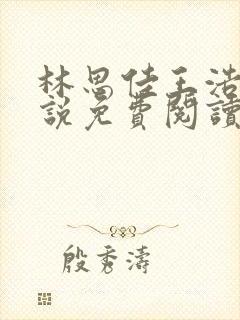 林思佳王浩
說免費閱讀
殷秀濤